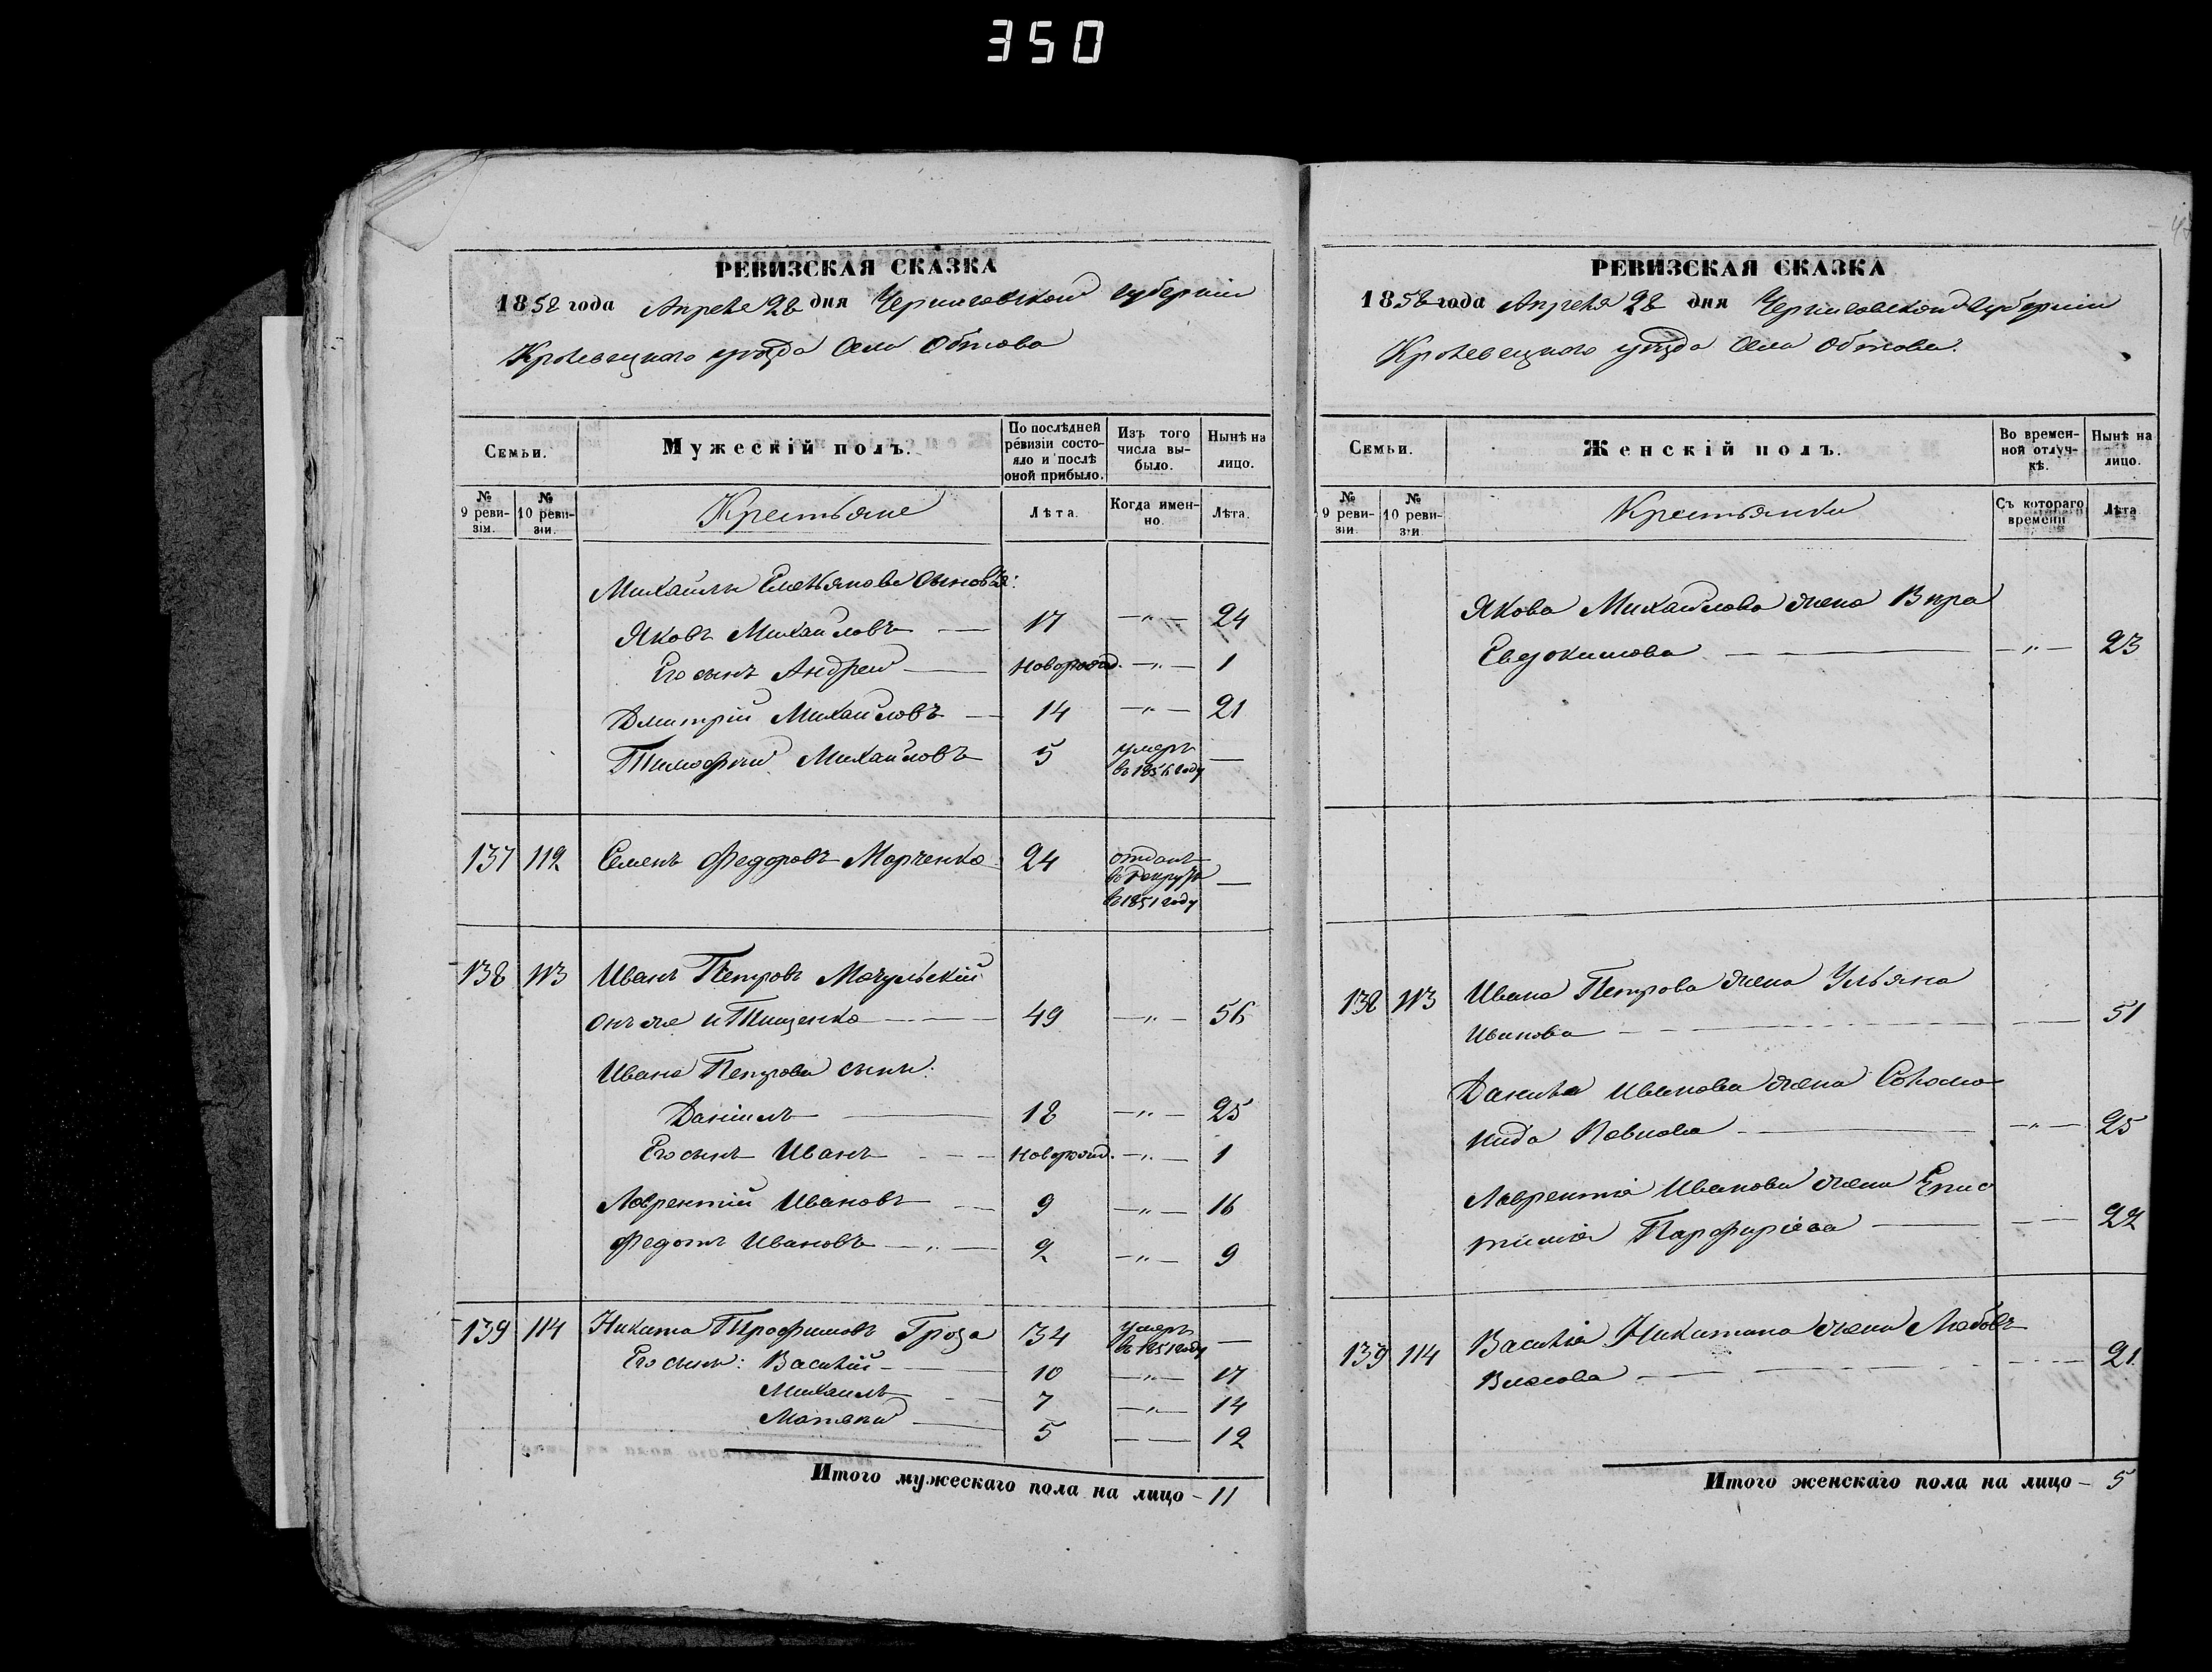 350
РЕВИЗСКАЯ СКАЗКА
1858 года Апреля 28 дня Черниговской губернии
Кролевецкого уезда Села Обтова
Семьи.
Мужескій полъ.
По послѣдней ревизіи состояло и послѣ оной прибыло.
Изъ того числа выбыло.
Нынѣ на лицо.
№ 9 ревизіи.
№ 10 ревизіи.
Крестьяне
Лѣта.
Когда именно.
Лѣта.
Михайлы Емельянова сыновья:
Яковъ Михайловъ — 17 —„— 24
Его сынъ Андрей — новорожд. —„— 1
Дмитрій Михайловъ — 14 —„— 21
Тимофей Михайловъ 5 умеръ въ 1856 году —
137 112 Семенъ Федоровъ Марченко 24 отданъ в рекруты в 1851 году —
138 113 Иванъ Петровъ Мачульскій
онъ же и Тищенко — 49 —„— 56
Ивана Петрова сыны:
Даніилъ — 18 —„— 25
Его сынъ Иванъ — новорожд. —„— 1
Лаврентій Ивановъ — 9 —„— 16
Федотъ Ивановъ —„— 2 —„— 9
139 114 Никита Трофимовъ Гроза 34 умеръ въ 1851 году —
Его сыны: Василій — 10 —„— 17
Михаилъ — 7 —„— 14
Матвей — 5 — — 12
Итого мужескаго пола на лицо – 11
РЕВИЗСКАЯ СКАЗКА
1858 года Апреля 28 дня Черниговской Губернии
Кролевецкого уѣзда Села Обтова.
Семьи.
Женскій полъ.
Во временной отлучкѣ.
Нынѣ на лицо.
№ 9 ревизіи.
№ 10 ревизіи
Крестьянки
Съ котораго времени
Лѣта
Якова Михайлова жена Вѣра
Евдокимова — —„— 23
138 113 Ивана Петрова жена Ульяна
Иванова — — 51
Данила Иванова жена Соломо
нида Павлова — —„— 25
Лаврентія Иванова жена Епис
тимія Парфиріева — — 22
139 114 Василія Никитина жена Любовь
Власова — — 21
Итого женскаго пола на лицо – 5